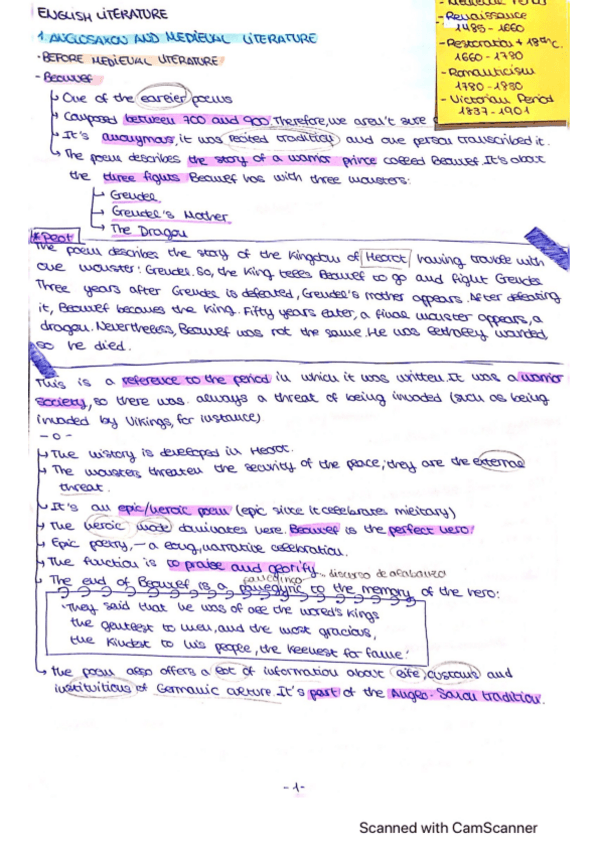 ENGLISH LITERATURE
- Renaissance
1485 - 1660
- Restoration + 18th C.
1660 - 1780
- Romanticism
1780 - 1830
- Victorian Period
1837 - 1901
1. ANGLOSAXON AND MEDIEVAL LITERATURE
· BEFORE MEDIEVAL LITERATURE
- Beowulf
One of the earlier poems
Composed between 700 and 900. Therefore, we aren't sure
It's anonymous, it was recited tradition and one person transcribed it.
The poem describes the story of a warrior prince called Beowulf. It's about
the three fights Beowulf has with three monsters:
Grendel
Grendel's Mother
The Dragon
* Plot
The poem describes the story of the kingdom of Heorot having trouble with
one monster: Grendel. So, the King tells Beowulf to go and fight Grendel.
Three years after Grendel is defeated, Grendel's mother appears. After defeating
it, Beowulf becomes the King. Fifty years later, a final monster appears, a
dragon. Nevertheless, Beowulf was not the same. He was lethally wounded,
so he died.
This is a reference to the period in which it was written. It was a warrior
society, so there was always a threat of being invaded (such as being
invaded by Vikings, for instance)
- o -
The history is developed in Heorot.
The monsters threaten the security of the peace; they are the external
threat.
It's an epic/heroic poem (epic since it celebrates military)
The heroic mode dominates here. Beowulf is the perfect hero!
Epic poetry, - a long, narrative celebration.
The function is to praise and glorify.
discurso de alabanza
The end of Beowulf is a panegyric to the memory of the hero:
'They said that he was of all the world's kings
the gentlest to men, and the most gracious,
the kindest to his people, the keenest for fame.'
The poem also offers a lot of information about life, customs and
instituitions of Germanic culture. It's part of the Anglo-Saxon tradition.
- 1 -
Scanned with CamScanner